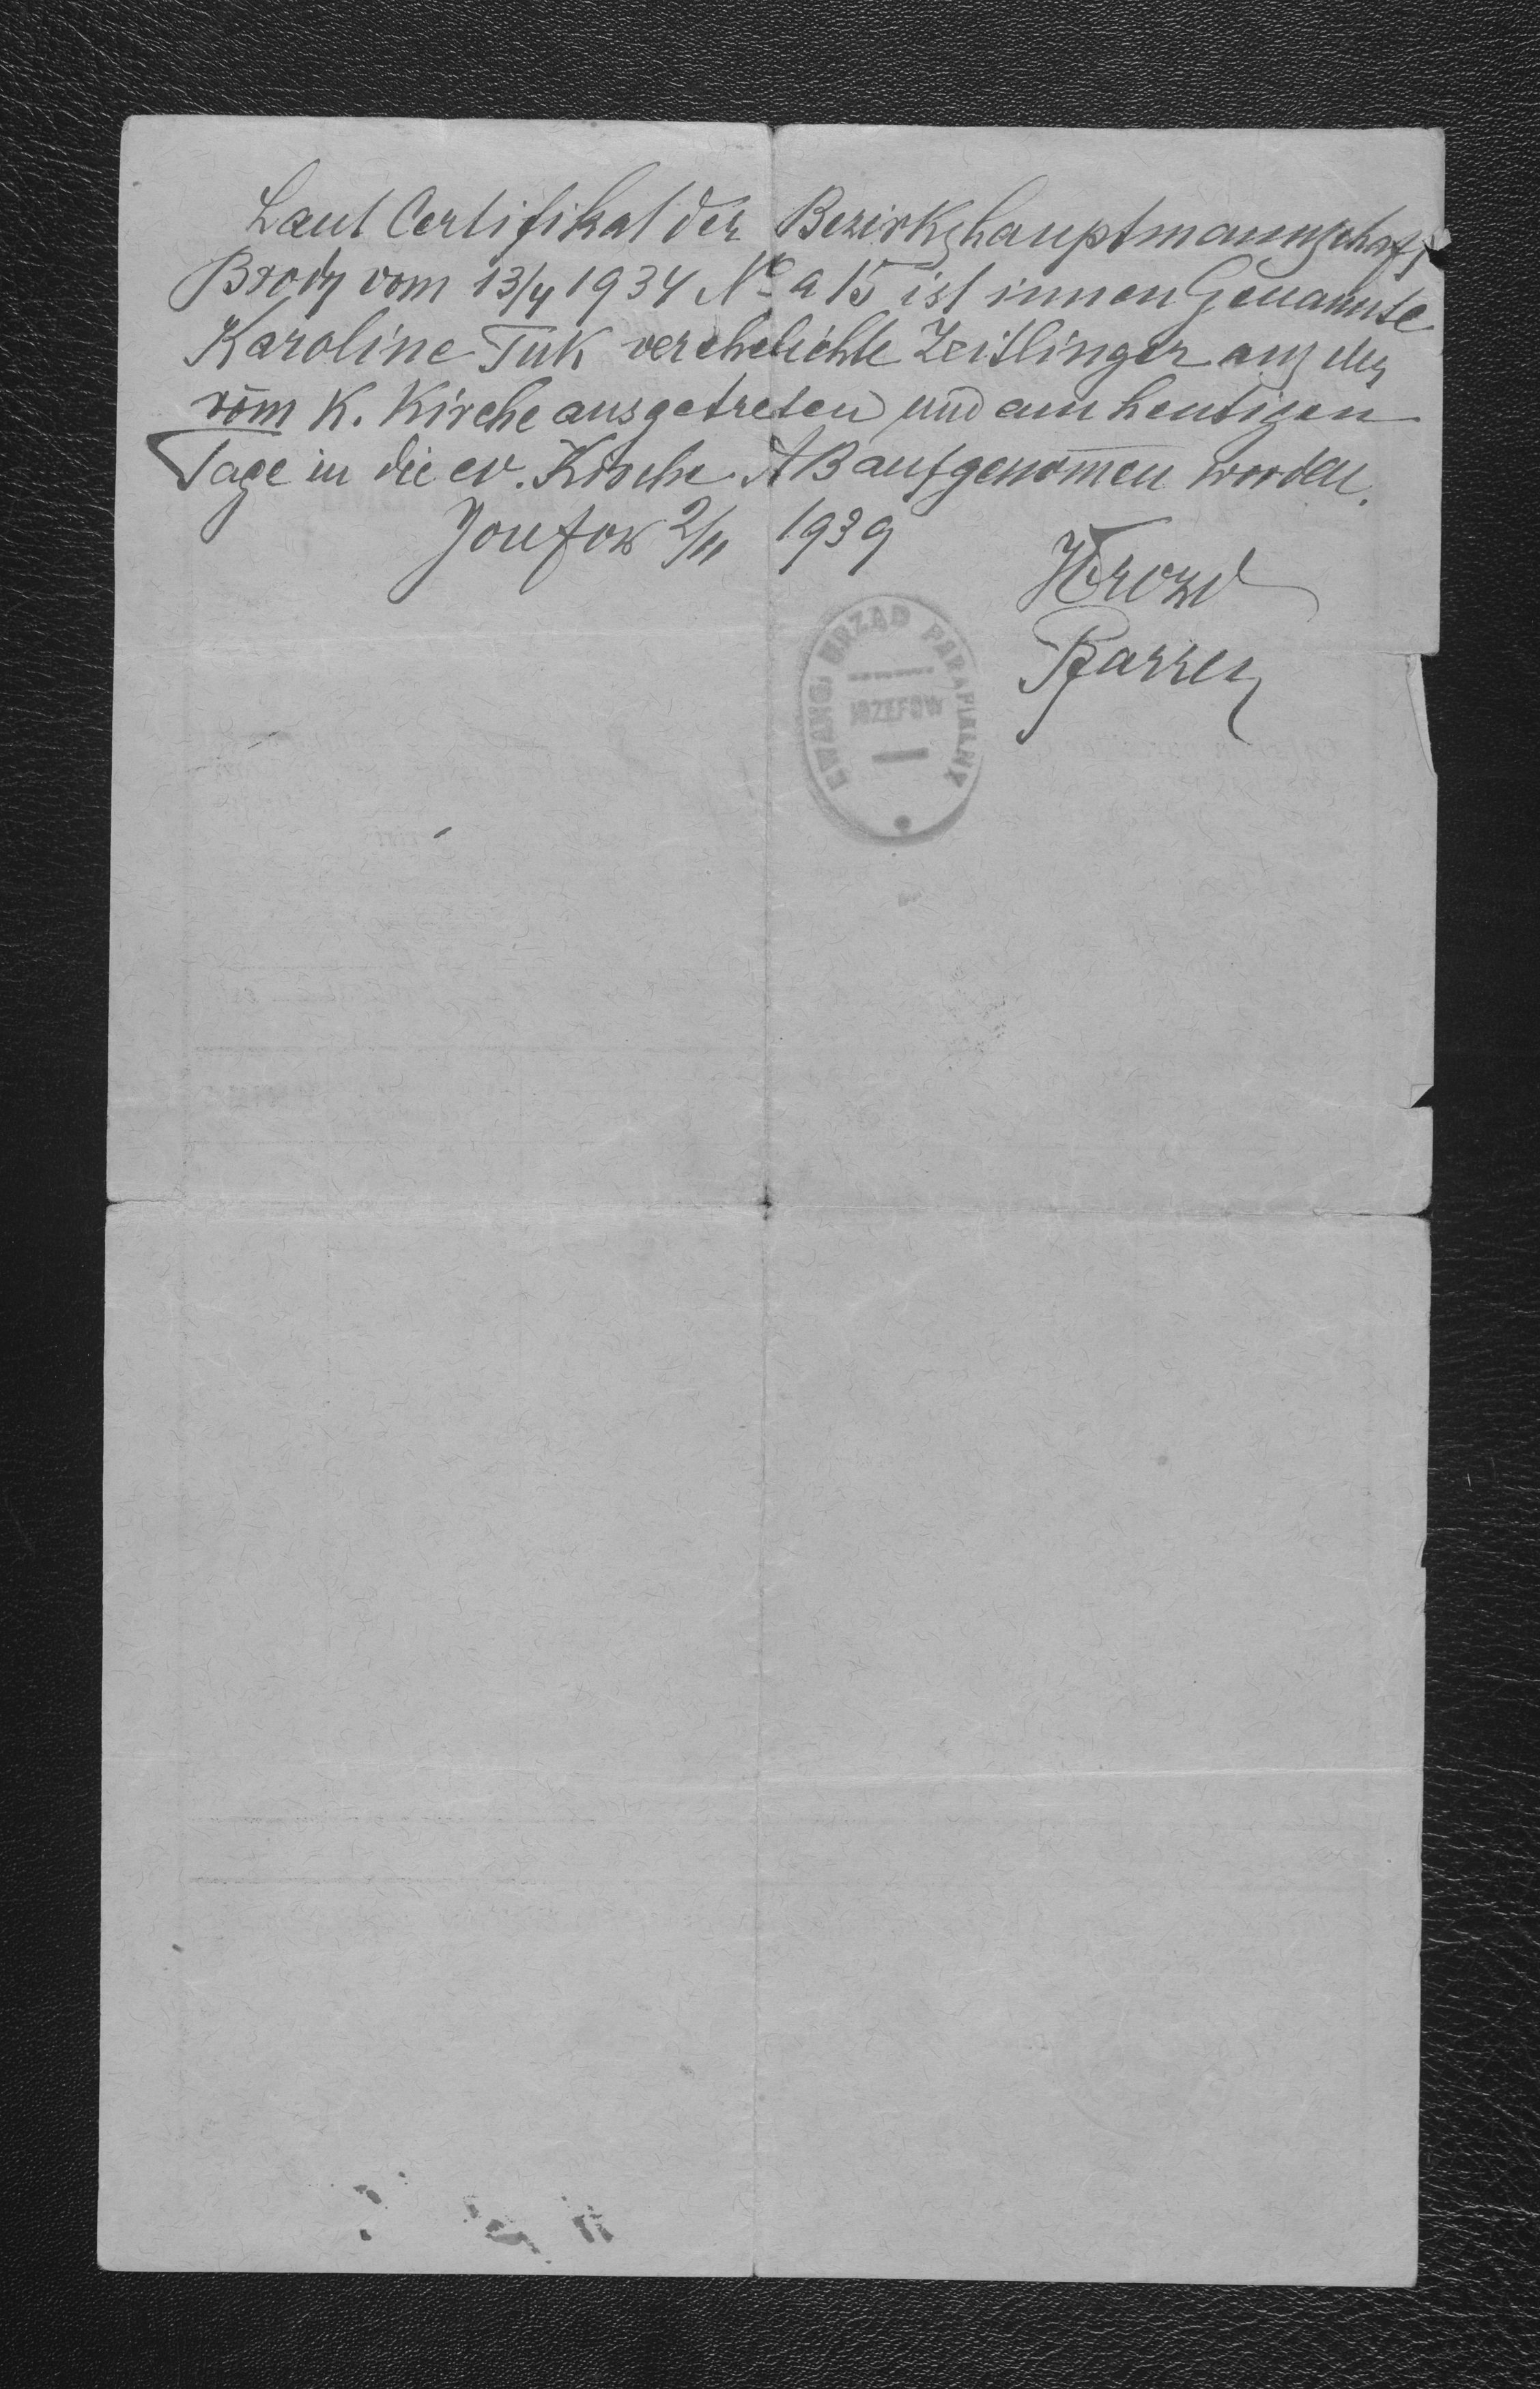 Laut Certifikat der Bezirkshauptmannschaft
Brody vom 13/4 1934 No a 15 ist innen Genannte
Karoline Tuk verehelichte Zeitlinger aus der
röm K. Kirche ausgetreten und am heutigen
Tage in die ev. Kirche AB aufgenom̄en worden.
Josefow 2/11 1939
Pfarrer
EWANG. URZĄD PARAFIALNY
JÓZEFÓW